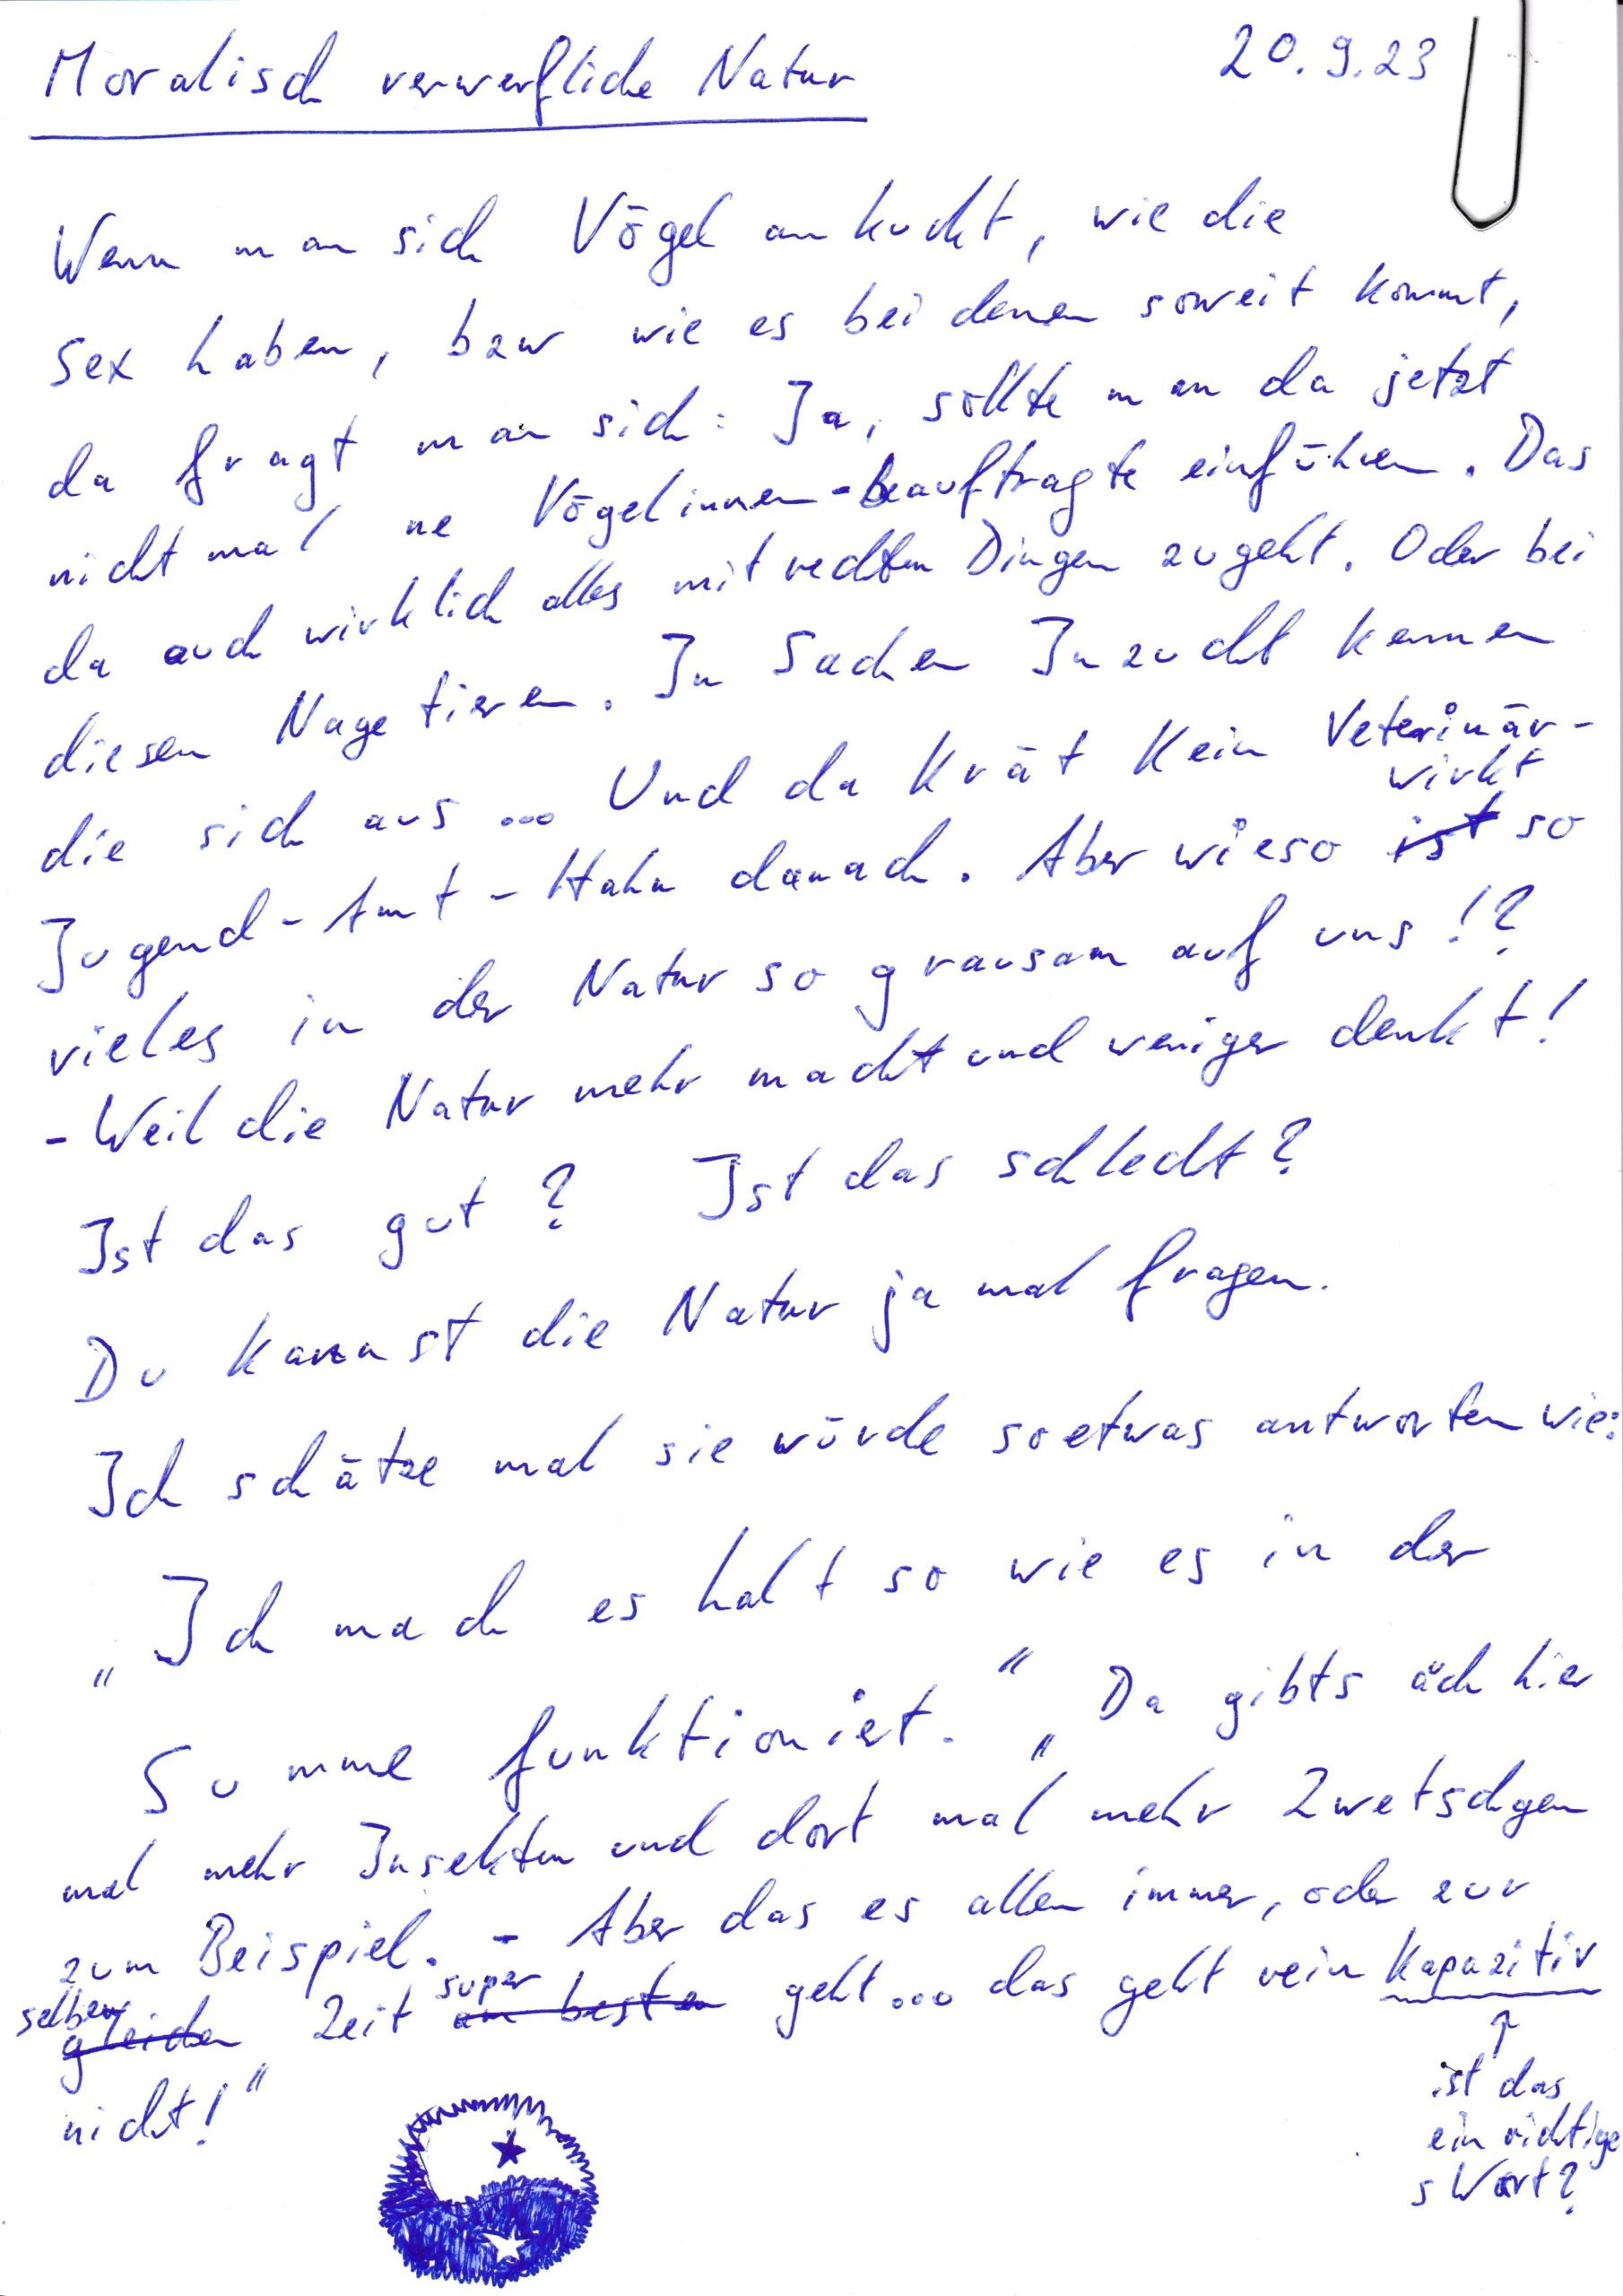 Moralisch verwerfliche Natur 20.9.23
Wenn man sich Vögel ankuckt, wie die
Sex haben, bzw wie es bei denen soweit kommt,
da fragt man sich: Ja, sollte man da jetzt
nicht mal ne Vögelinnen-beauftragte einführen. Das
da auch wirklich alles mit rechten Dingen zugeht. Oder bei
diesen Nagetieren. In Sachen Inzucht kennen
die sich aus... Und da krät kein Veterinär-
Jugend-Amt-Hahn danach. Aber wieso ist wirkt so
vieles in der Natur so grausam auf uns!?
- Weil die Natur mehr macht und weniger denkt!
Ist das gut? Ist das schlecht?
Du kannst die Natur ja mal fragen.
Ich schätze mal sie würde soetwas antworten wie:
„Ich mach es halt so wie es in der
Summe funktioniert." „Da gibts äch hier
mal mehr Insekten und dort mal mehr Zwetschgen
zum Beispiel. - Aber das es allen immer, oder zur
gleichen selben Zeit am besten super geht... das geht rein kapazitiv
nicht!"
↑
ist das
ein richtige
s Wort?